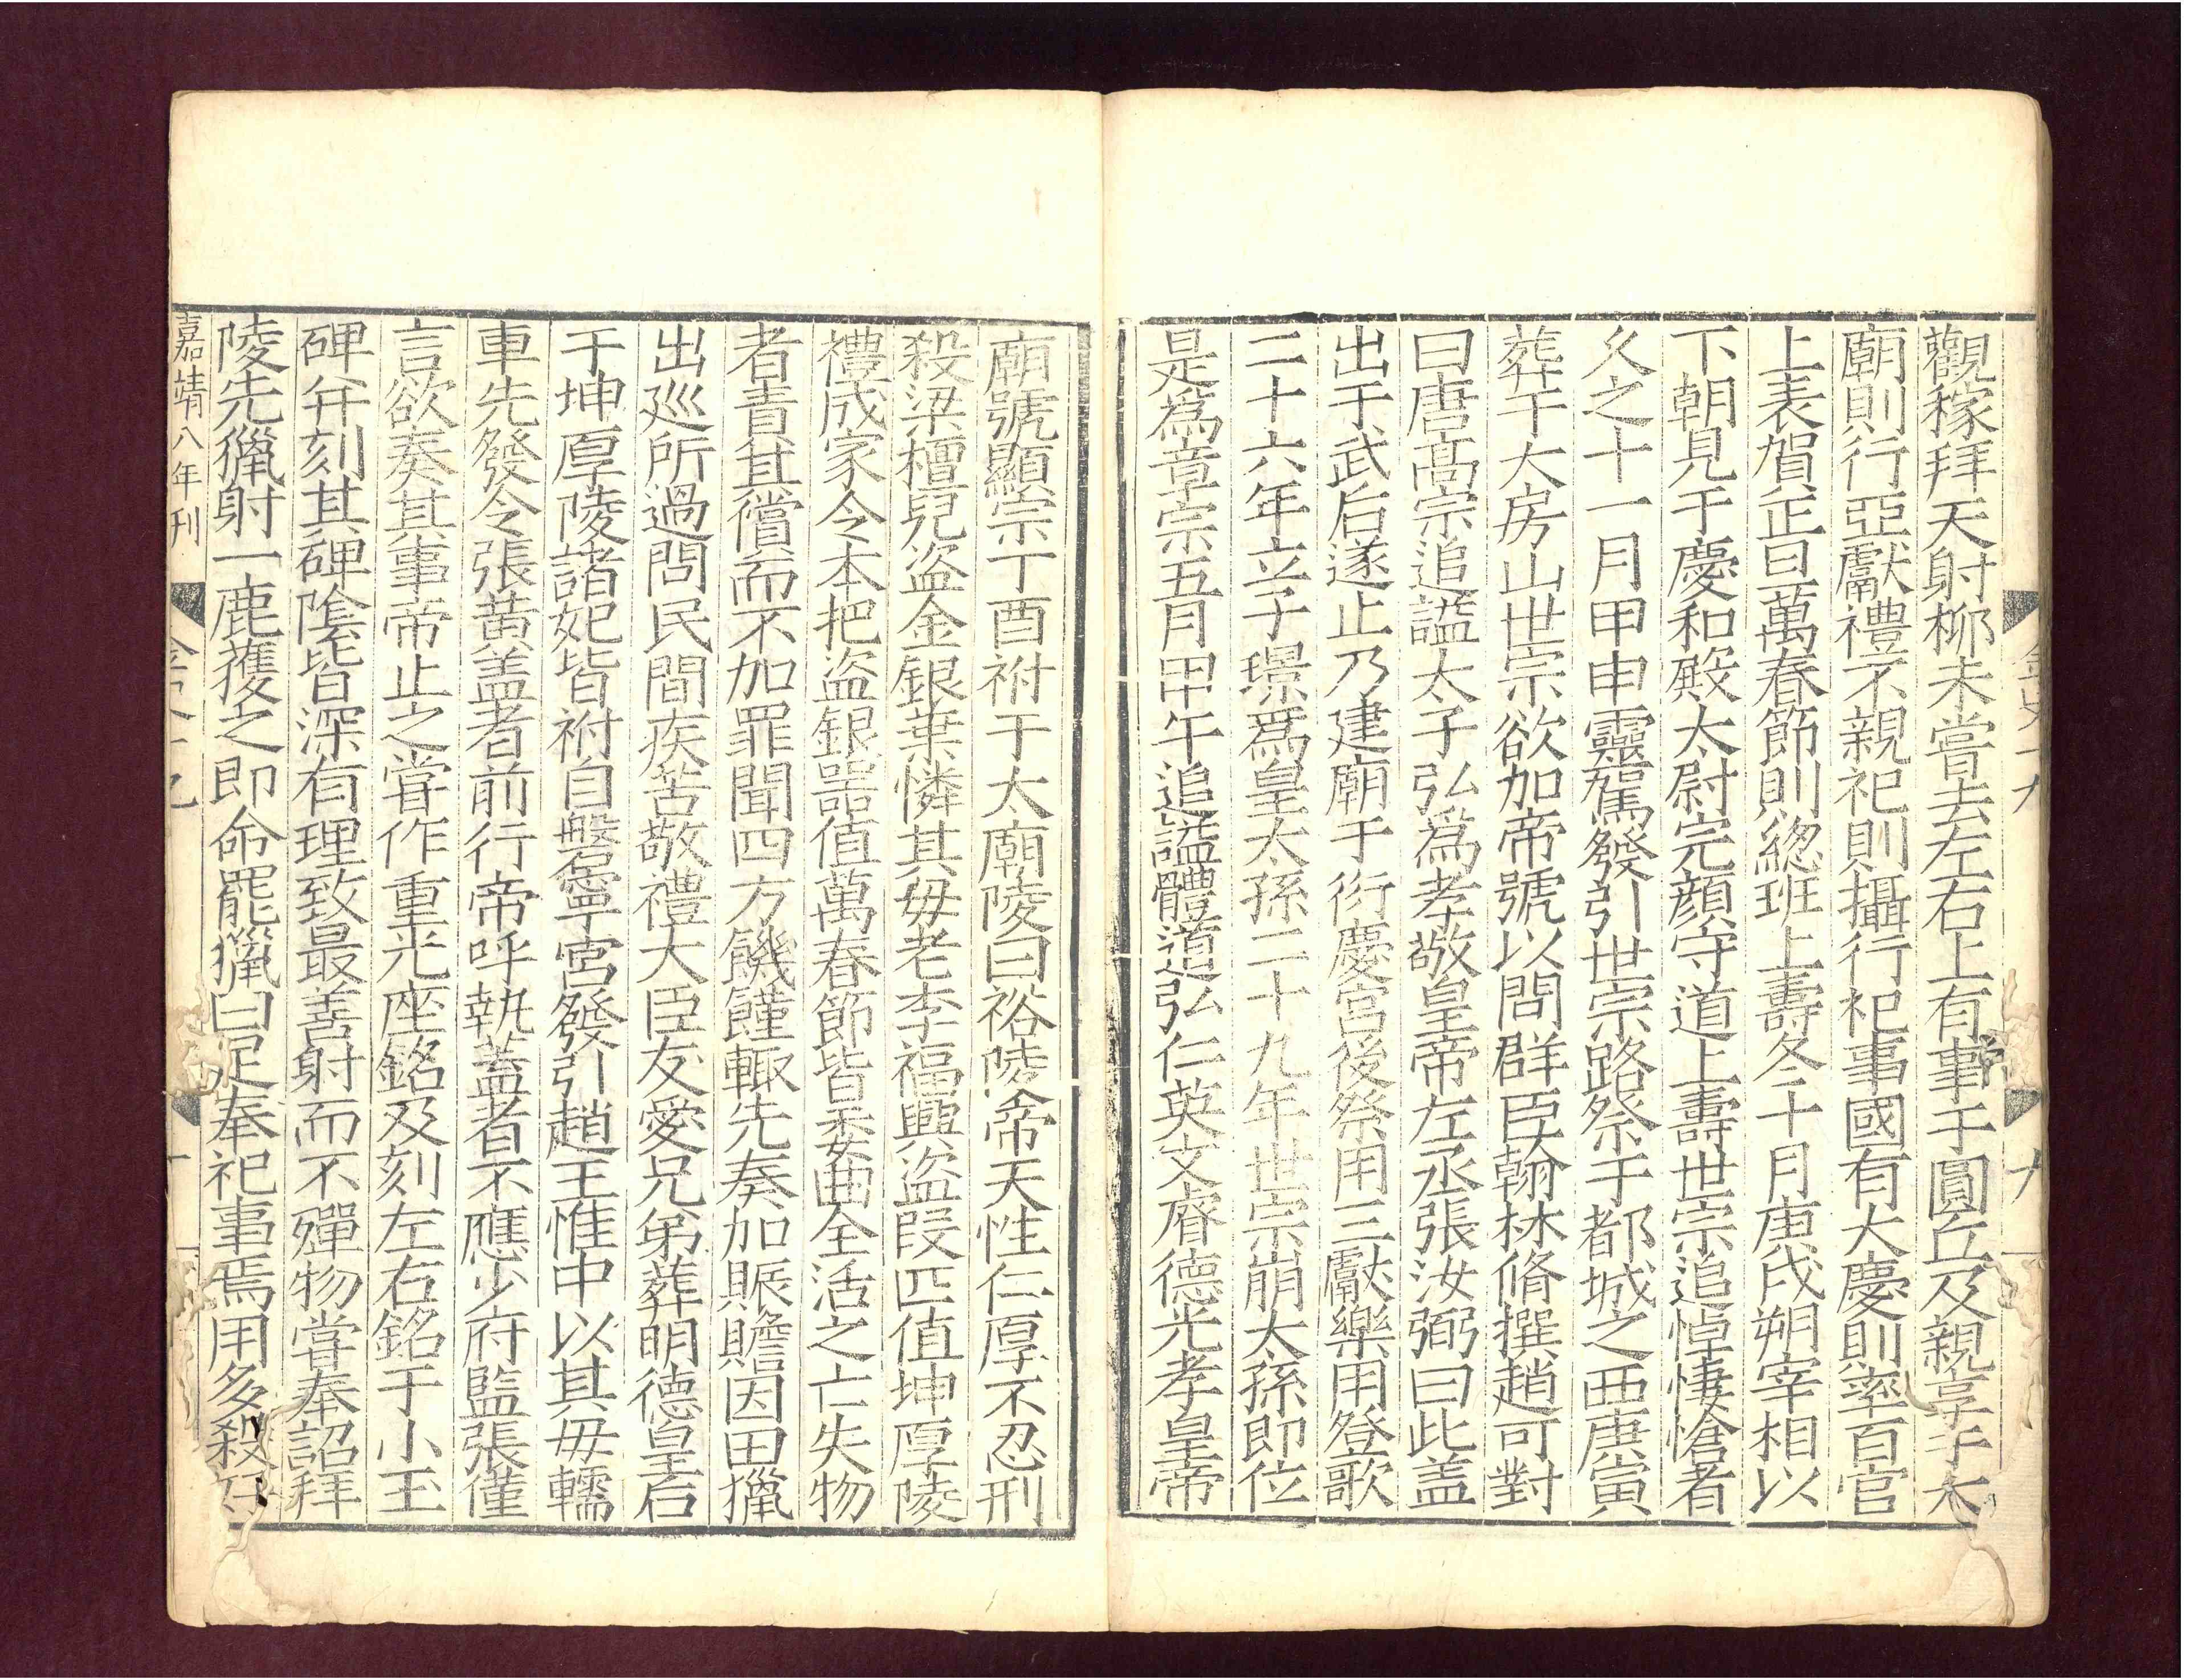 觀稼拜天射柳未嘗去左右上有事于圓丘及親享于太
廟則行亞獻禮不親祀則攝行祀事國有大慶則率百官
上表賀正旦萬春節則緫班上壽冬十月庚戌朔宰相以
下朝見于慶和殿太尉完顔守道上壽世宗追悼悽愴者
久之十一月甲申靈駕發引世宗路祭于都城之西庚寅
葬于大房山世宗欲加帝號以問群臣翰林脩撰趙可對
曰唐髙宗追謚太子弘爲孝敬皇帝左丞張汝弼曰此盖
出于武后遂止乃建廟于衍慶宫後祭用三獻樂用登歌
二十六年立子璟爲皇太孫二十九年世宗崩太孫即位
是爲章宗五月甲午追謚體道弘仁英文睿德光孝皇帝
廟號顯宗丁酉祔于太廟陵曰裕陵帝天性仁厚不忍刑
殺梁檀兒盗金銀葉憐其毋老李福興盗段匹值坤厚陵
禮成家令本把盗銀噐值萬春節皆委曲全活之亡失物
者責其償而不加罪聞四方饑饉輙先奏加賑贍因田獵
出廵所過問民間疾苦敬禮大臣友愛兄弟葬明德皇后
于坤厚陵諸妃皆祔自磐寧宫發引趙王惟中以其毋轜
車先發令張黄盖者前行帝呼執蓋者不應少府監張僅
言欲奏其事帝止之甞作重光座銘及刻左右銘于小玉
碑并刻其碑隂皆深有理致最善射而不殫物甞奉詔拜
陵先獵射一鹿獲之即命罷獵曰足奉祀事焉用多殺好
嘉靖八年刊